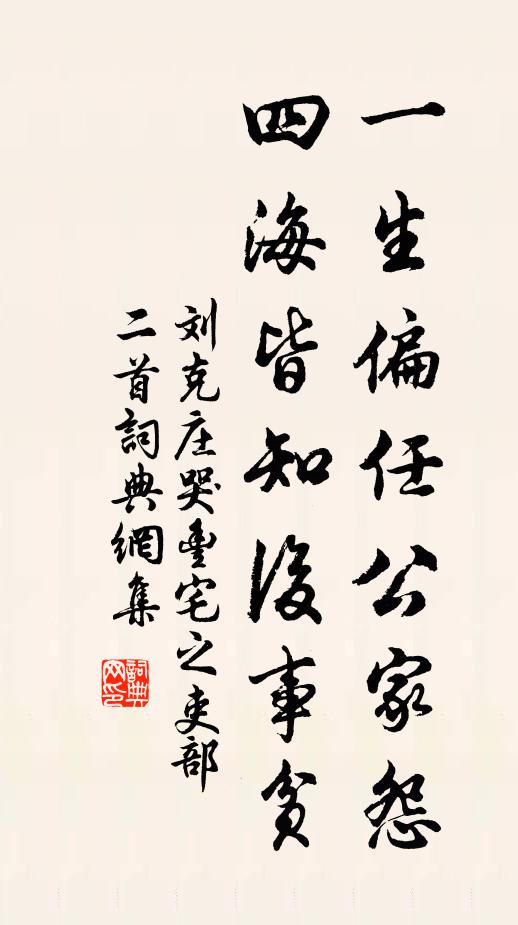 一生偏任公家怨
四海皆知没事贫
刘克庄哭豊宅之吏部
二首詞典網集
詞典网印